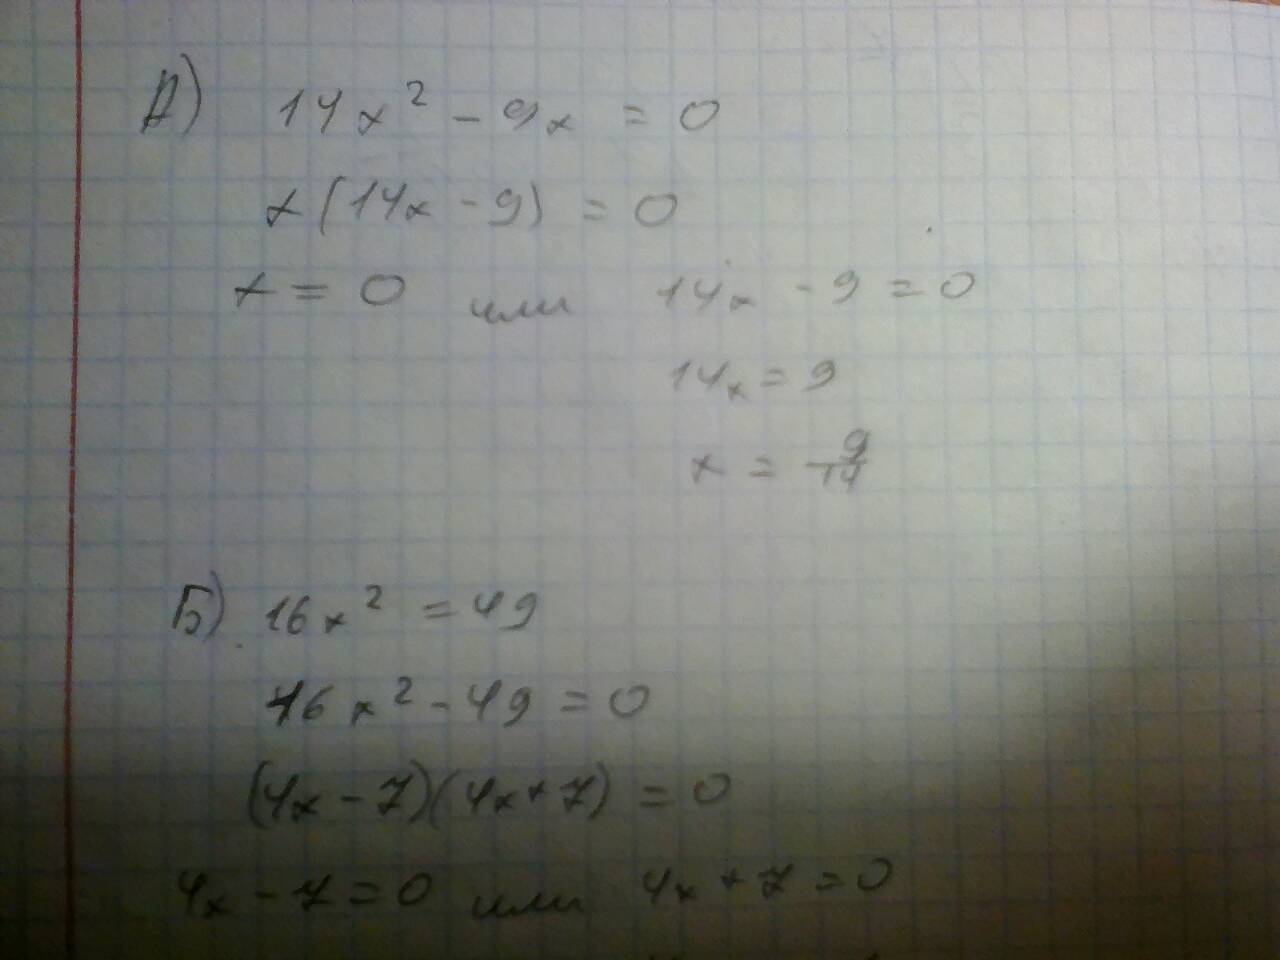 А) 14x² - 9x = 0
x(14x - 9) = 0
x = 0 или 14x - 9 = 0
14x = 9
x = 9/14
Б) 16x² = 49
16x² - 49 = 0
(4x - 7)(4x + 7) = 0
4x - 7 = 0 или 4x + 7 = 0